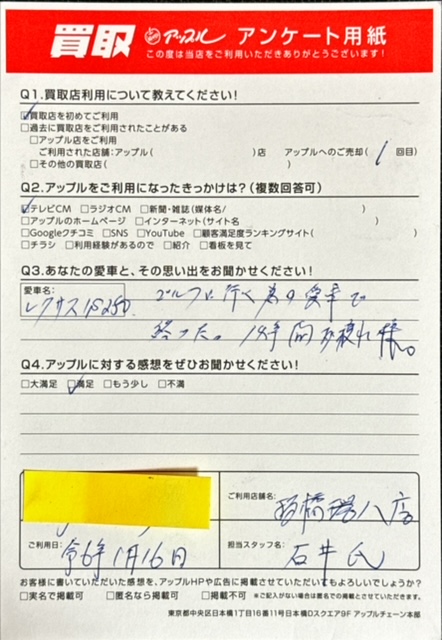 買取 アップル アンケート用紙
この度は当店をご利用いただきありがとうございます!
Q1.買取店利用について教えてください!
☑買取店を初めてご利用
□過去に買取店をご利用されたことがある
□アップル店をご利用
ご利用された店舗:アップル( )店 アップルへのご売却( 1 回目)
□その他の買取店( )
Q2.アップルをご利用になったきっかけは?(複数回答可)
☑テレビCM □ラジオCM □新聞・雑誌(媒体名/ )
□アップルのホームページ □インターネット(サイト名 )
□Googleクチコミ □SNS □YouTube □顧客満足度ランキングサイト( )
□チラシ □利用経験があるので □紹介 □看板を見て
Q3.あなたの愛車と、その思い出をお聞かせください!
愛車名:
レクサスIS250. ゴルフに行く為の愛車で
終った。14年間お疲れ様。
Q4.アップルに対する感想をぜひお聞かせください!
□大満足 ☑満足 □もう少し □不満
ご利用店舗名: 板橋 店
ご利用日: 令6年1月16日 担当スタッフ名: 石井氏
お客様に書いていただいた感想を、アップルHPや広告に掲載させていただいてもよろしいでしょうか?
□実名で掲載可 □匿名なら掲載可 □掲載不可 ※ご記入がない場合は匿名での掲載とさせていただきます。
東京都中央区日本橋1丁目16番11号日本橋Dスクエア9F アップルチェーン本部